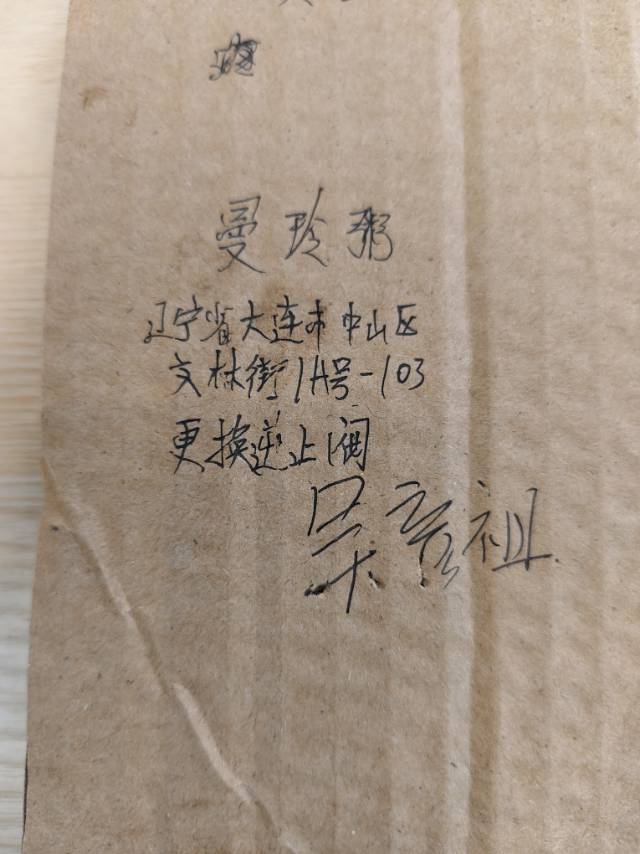 曼玲粥
辽宁省大连市中山区
文林街1A号-103
更换逆止阀
吴彦祖